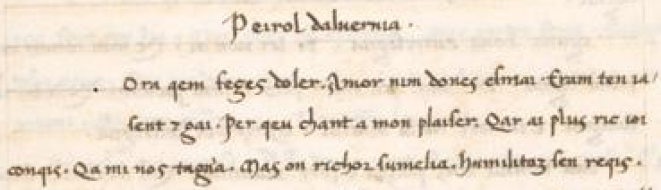 Peirol daluernia.
Ora qem feges doler. Amor nim dones esmai. Eram ten ia/
sent 7 gai. Per qeu chant a mon plaiser. Qar ai plus ric ioi
conqis. Qa mi nos tagna. Mas on richor sumelia. humilitaz sen regis.